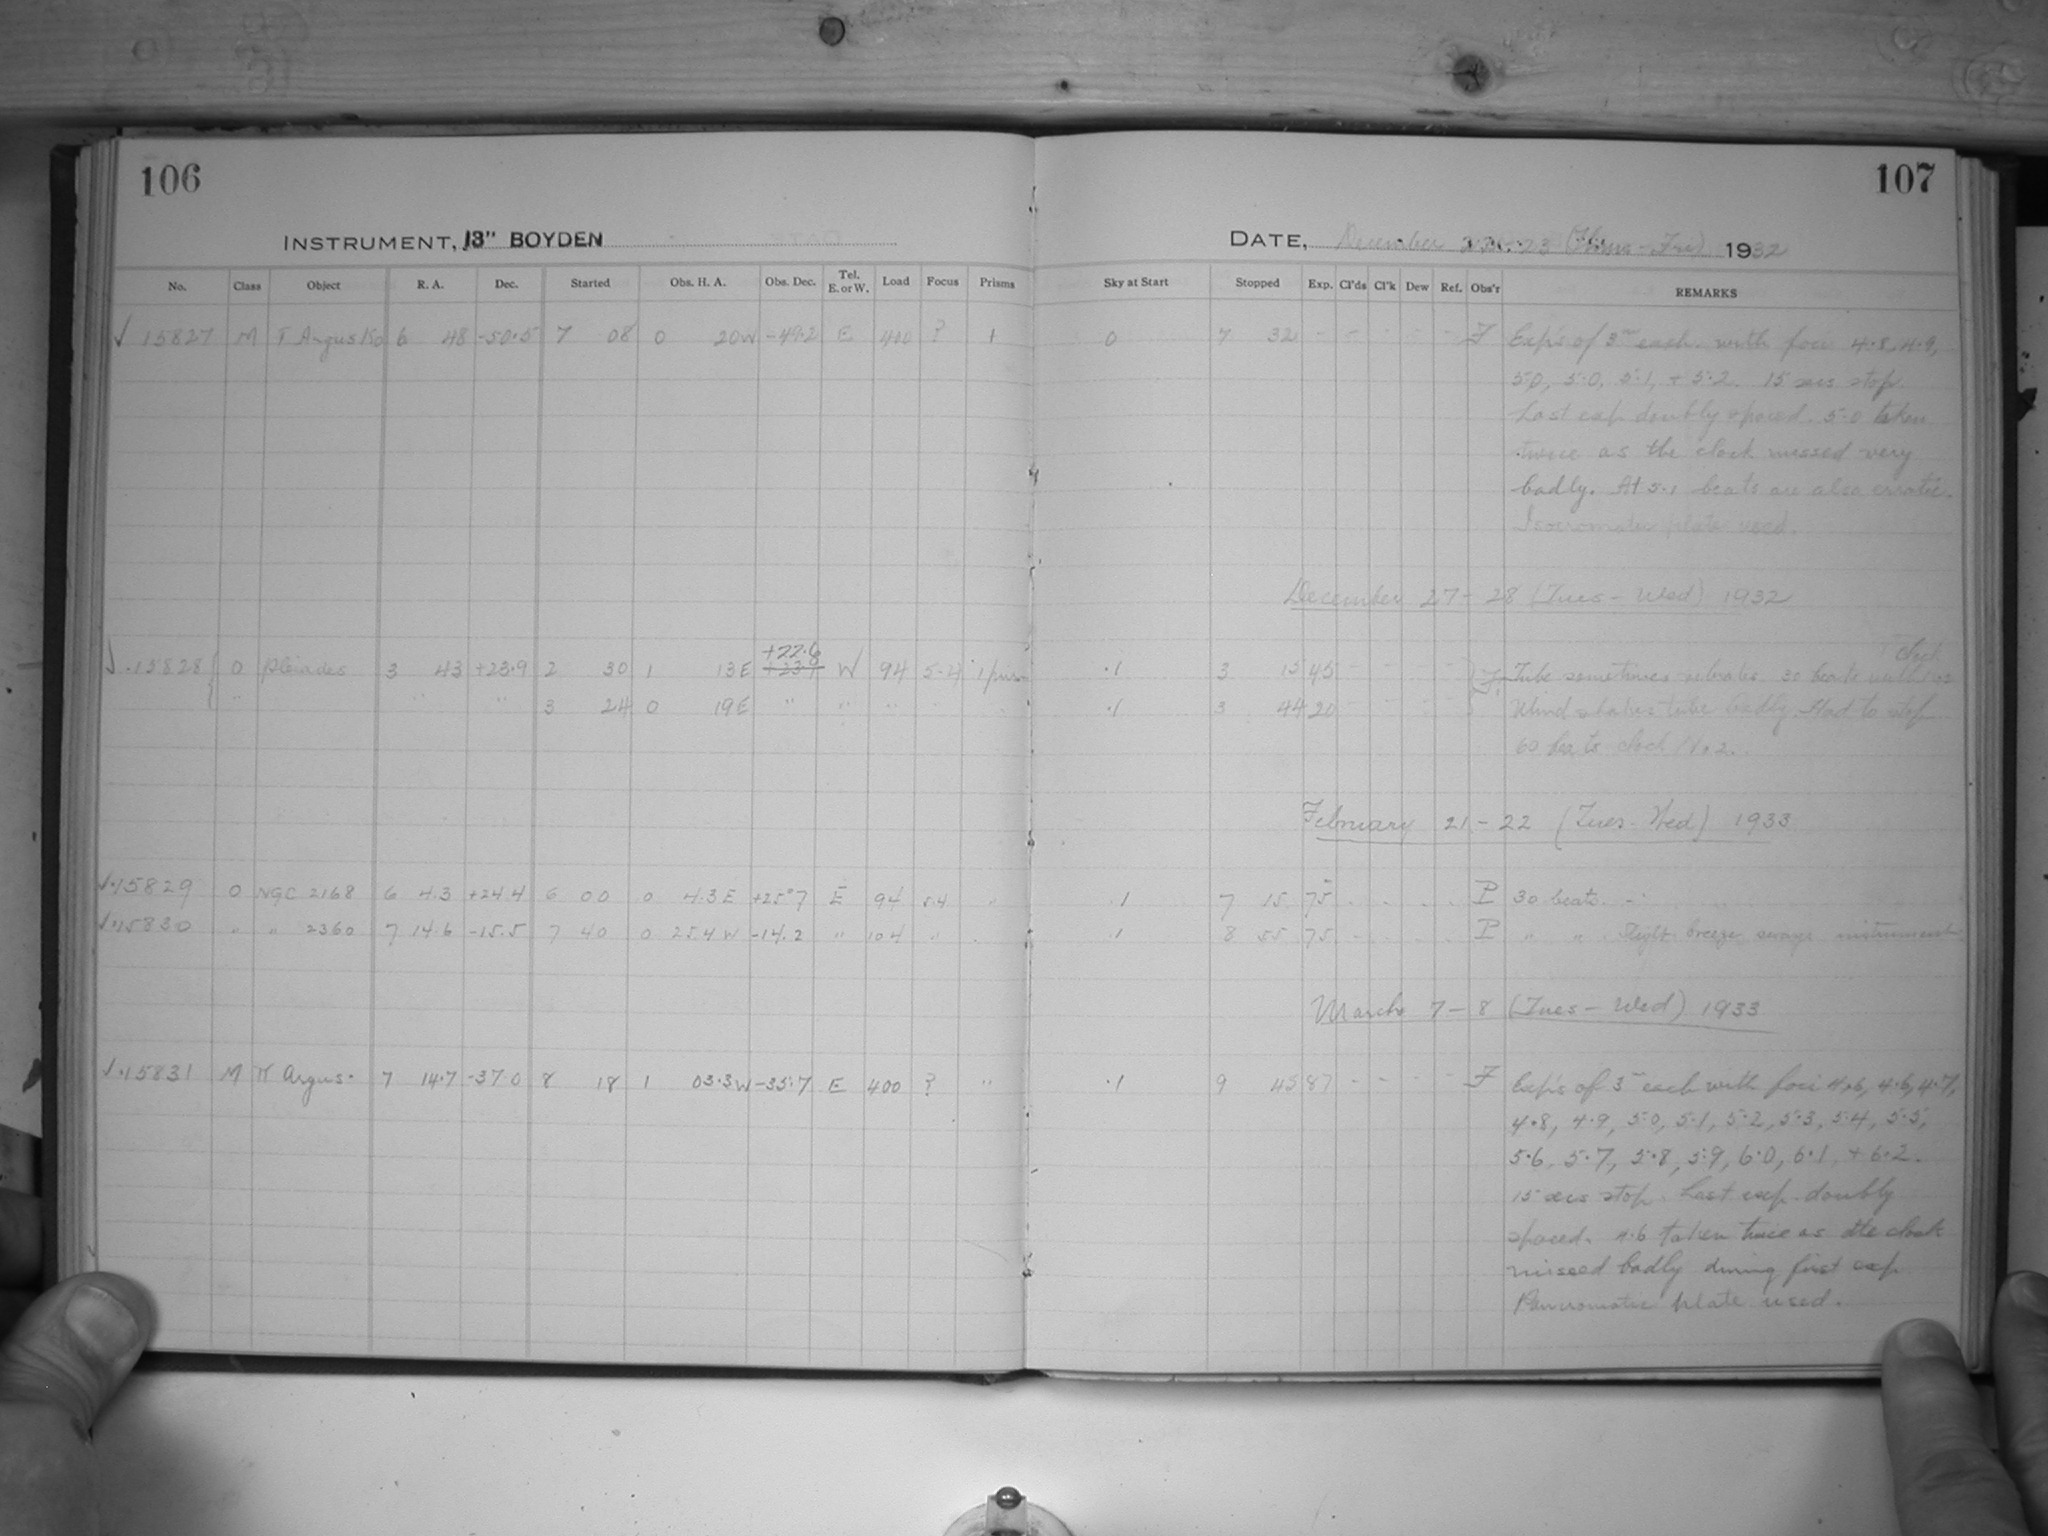 106
107
INSTRUMENT, 13" BOYDEN
DATE, December 22-23 (Thurs-Fri) 1932
No. Class Object R. A. Dec. Started Obs. H. A. Obs. Dec. Tel. E. or W. Load Focus Prisms Sky at Start Stopped Exp. Cl'ds Cl'k Dew Ref. Obs'r REMARKS
√ 15827 M T Argus 6 48 -50.5 7 08 0 20W -49.2 E 400 ? 1 0 7 32 - - - - - F Exp's of 3m each with foci 4.8, 4.9,
5.0, 5.0, 5.1, + 5.2. 15 secs stop
Last exp. doubly spaced. 5.0 taken
twice as the clock missed very
badly. At 5.1 beats are also erratic.
Isocromatic plate used.
December 27-28 (Tues-Wed) 1932
√ 15828 0 Pleiades 3 43 +23.9 2 30 1 13E +22.6 W 94 5.4 1 prism .1 3 15 45 - - - - F Tube sometimes vibrates. 30 beats with
" " " 3 24 0 19E " " " .1 3 44 20 Wind shakes tube badly. Had to stop
60 beats clock No 2.
February 21-22 (Tues-Wed) 1933
√ 15829 0 NGC 2168 6 4.3 +24.4 6 00 0 4.3E +25°7 E 94 5.4 " .1 7 15 75 . . . . P 30 beats. -
√ 15830 " " 2360 7 14.6 -15.5 7 40 0 25.4W -14.2 " 104 " . .1 8 55 75 . . . . P " " Slight breeze sways instrument.
March 7-8 (Tues-Wed) 1933
√ 15831 M π Argus 7 14.7 -37.0 8 18 1 03.3W -35.7 E 400 ? " .1 9 45 87 - - - - F Exp's of 3m each with foci 4.6, 4.6, 4.7,
4.8, 4.9, 5.0, 5.1, 5.2, 5.3, 5.4, 5.5,
5.6, 5.7, 5.8, 5.9, 6.0, 6.1, + 6.2.
15 secs stop. Last exp. doubly
spaced. 4.6 taken twice as the clock
missed badly during first exp
Pancromatic plate used.